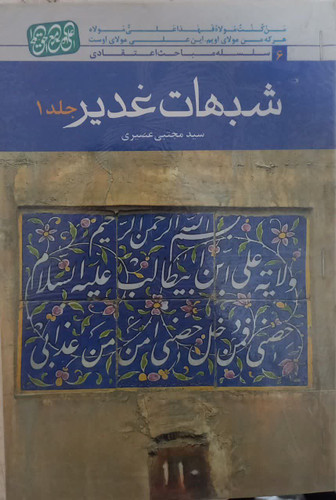 من کنت مولاه فهذا علی مولاه
هر که من مولای اویم این علی مولای اوست
۶ سلسله مباحث اعتقادی
شبهات غدیر جلد ۱
سید مجتبی عصیری
بسم الله الرحمن الرحیم
ولایة علی ابن ابیطالب علیه السلام
حصنی فمن دخل حصنی امن من عذابی